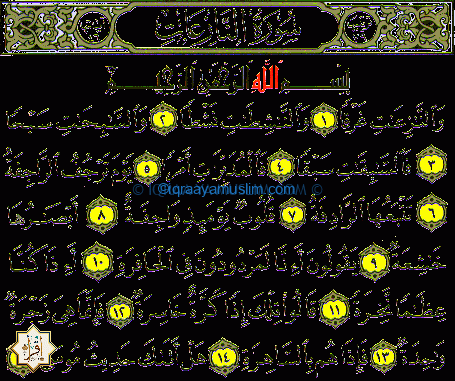 سورة النازعات
بسم الله الرحمن الرحيم
وَالنَّازِعَاتِ غَرْقًا ١ وَالنَّاشِطَاتِ نَشْطًا ٢ وَالسَّابِحَاتِ سَبْحًا
٣ فَالسَّابِقَاتِ سَبْقًا ٤ فَالْمُدَبِّرَاتِ أَمْرًا ٥ يَوْمَ تَرْجُفُ الرَّاجِفَةُ
© iqraayamuslim.com
٦ تَتْبَعُهَا الرَّادِفَةُ ٧ قُلُوبٌ يَوْمَئِذٍ وَاجِفَةٌ ٨ أَبْصَارُهَا
خَاشِعَةٌ ٩ يَقُولُونَ أَءِنَّا لَمَرْدُودُونَ فِي الْحَافِرَةِ ١٠ أَءِذَا كُنَّا
عِظَامًا نَّخِرَةً ١١ قَالُوا تِلْكَ إِذًا كَرَّةٌ خَاسِرَةٌ ١٢ فَإِنَّمَا هِيَ زَجْرَةٌ
وَاحِدَةٌ ١٣ فَإِذَا هُم بِالسَّاهِرَةِ ١٤ هَلْ أَتَاكَ حَدِيثُ مُوسَى